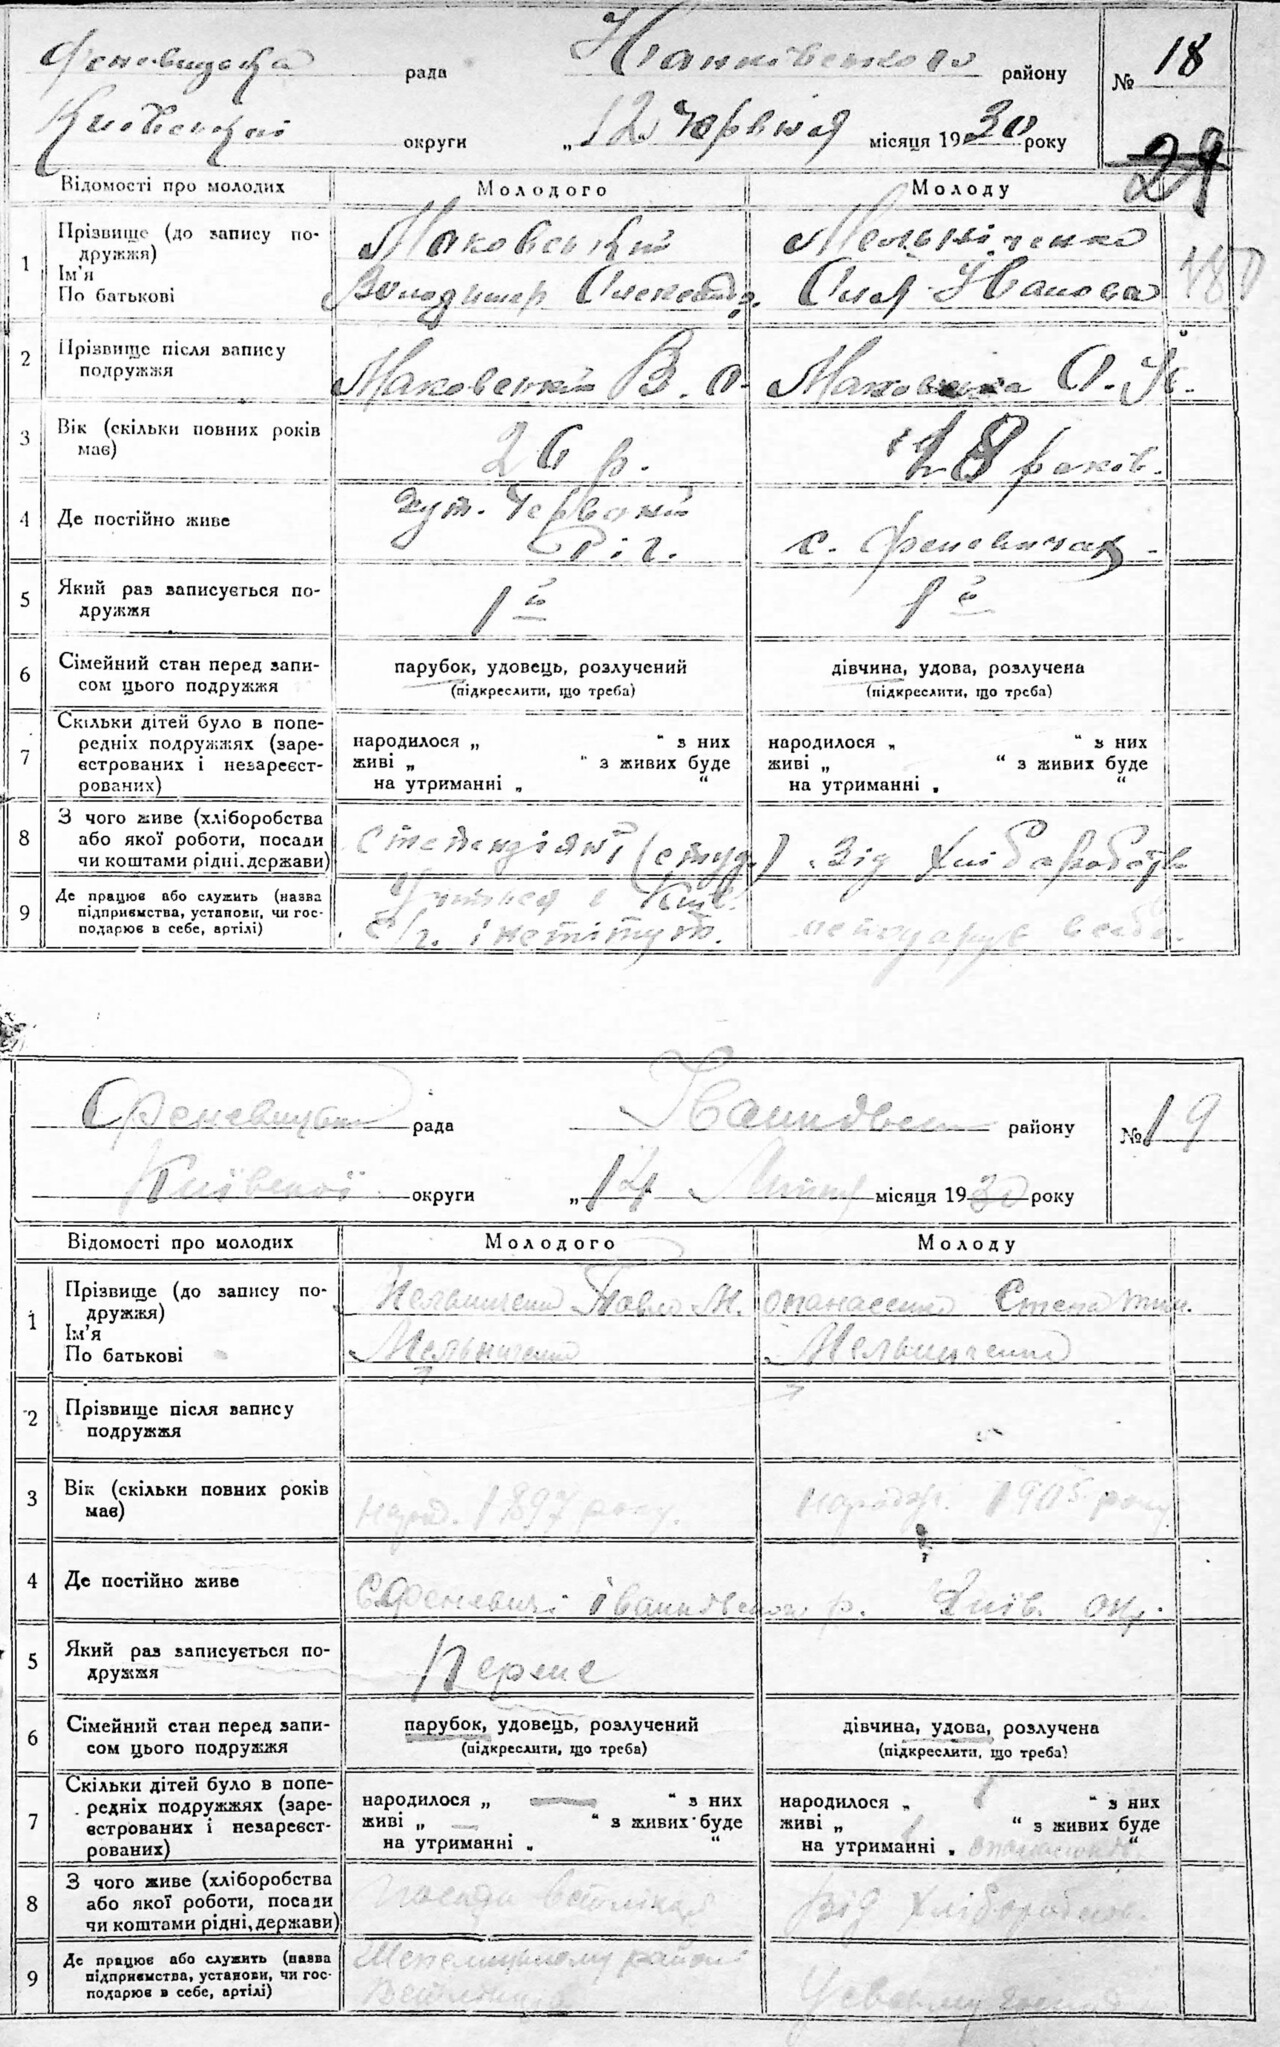 Феневицька рада Іванківського району № 18
Київської округи „12 червня місяця 1930 року
29
Відомості про молодих Молодого Молоду
1 Прізвище (до запису подружжя) Маковський Мельніченко
Ім'я
По батькові Володимир Олександр. Оля Іванова
2 Прізвище після запису подружжя Маковський В. О. Маковська О. І.
3 Вік (скільки повних років має) 26 р. 18 років.
4 Де постійно живе хут. Червоний Ріг. с. Феневичах
5 Який раз записується подружжя 1й 1й
6 Сімейний стан перед записом цього подружжя парубок, удовець, розлучений дівчина, удова, розлучена
(підкреслити, що треба) (підкреслити, що треба)
7 Скільки дітей було в попередніх подружжях (зареєстрованих і незареєстрованих) народилося „ “ з них народилося „ “ з них
живі „ “ з живих буде живі „ “ з живих буде
на утриманні „ “ на утриманні „ “
8 З чого живе (хліборобства або якої роботи, посади чи коштами рідні, держави) стипендіянт (студ.) Від хліборобств
9 Де працює або служить (назва підприємства, установи, чи господарює в себе, артілі) Учится в Київ. с/г. інститут.
Феневицька рада Іванківськ району № 19
Київської округи „14 Липня місяця 1930 року
Відомості про молодих Молодого Молоду
1 Прізвище (до запису подружжя) Мельниченко Павло М. Опанасенко Степа
Ім'я
По батькові Мельниченко Мельниченко
2 Прізвище після запису подружжя
3 Вік (скільки повних років має) народ. 1897 року. народж. 1905 року
4 Де постійно живе С Феневичі Іванківського р. Київ. окр.
5 Який раз записується подружжя Перше
6 Сімейний стан перед записом цього подружжя парубок, удовець, розлучений дівчина, удова, розлучена
(підкреслити, що треба) (підкреслити, що треба)
7 Скільки дітей було в попередніх подружжях (зареєстрованих і незареєстрованих) народилося „ — “ з них народилося „ 1 “ з них
живі „ — “ з живих буде живі „ 1 “ з живих буде
на утриманні „ “ на утриманні „ “
8 З чого живе (хліборобства або якої роботи, посади чи коштами рідні, держави) Посада Від хліборобств.
9 Де працює або служить (назва підприємства, установи, чи господарює в себе, артілі) районі